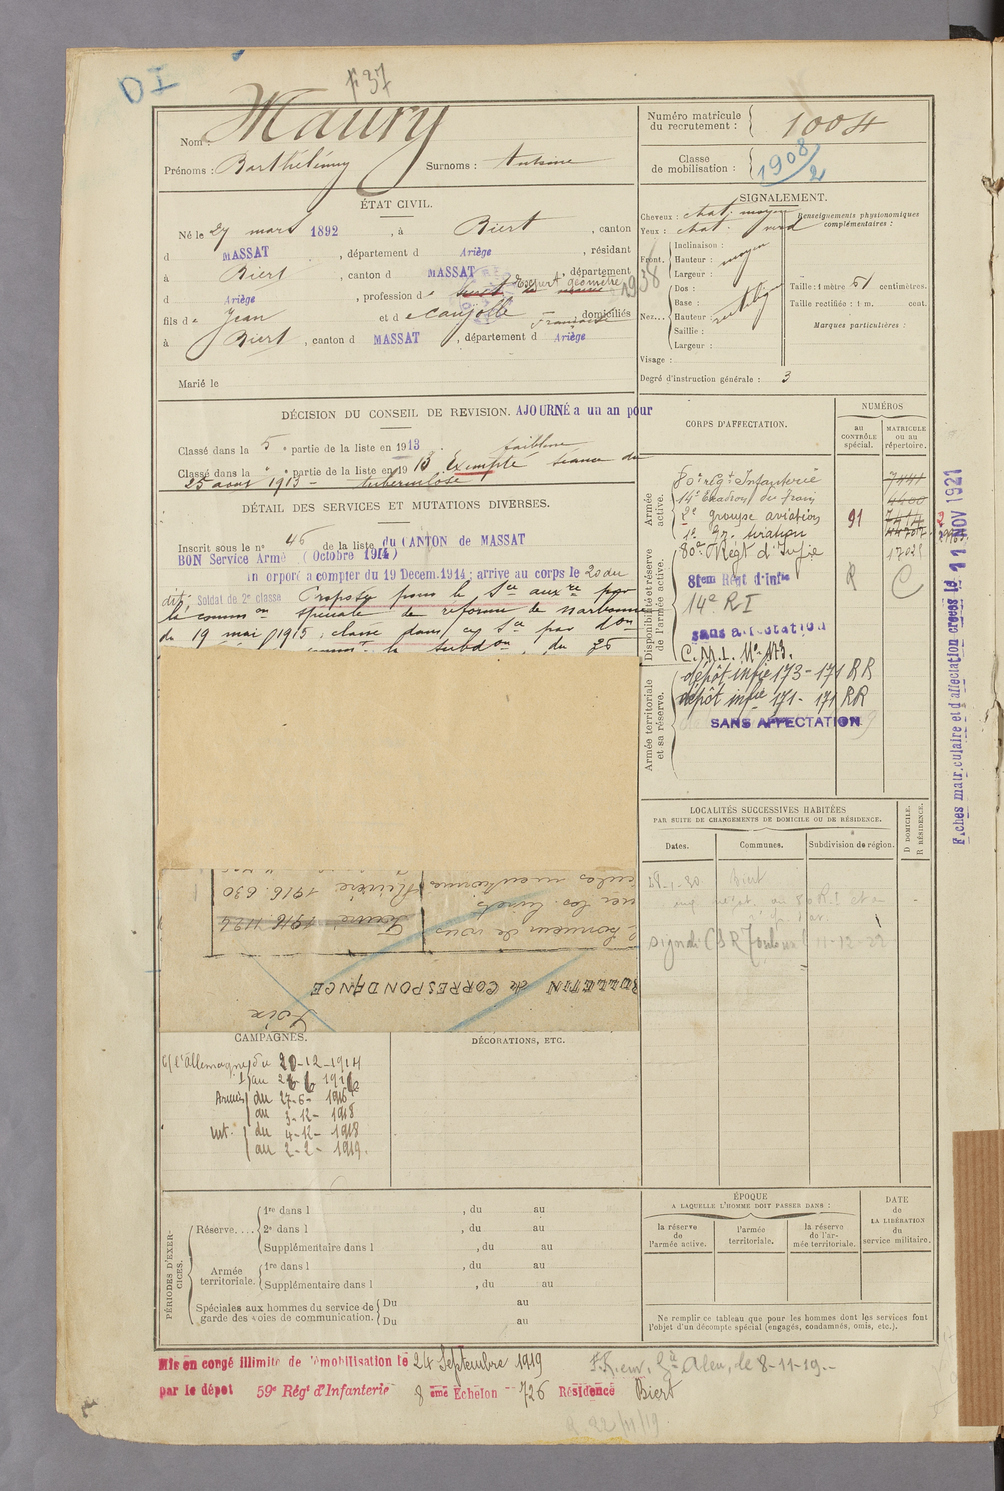 DI
F 37
Nom : Maury
Prénoms : Barthélémy Surnoms : Antoine
ÉTAT CIVIL.
Né le 27 mars 1892, à Biert, canton
d MASSAT, département d Ariège, résidant
à Biert, canton d MASSAT, département
d Ariège, profession de Expert géomètre 1938
fils de Jean et de Caujolle Françoise, domiciliés
à Biert, canton d MASSAT, département d Ariège
Marié le
Numéro matricule du recrutement : 1004
Classe de mobilisation : 1908/2
SIGNALEMENT.
Cheveux : chat. moyen
Yeux : chat.
Front. Inclinaison :
Hauteur : moyen
Largeur :
Nez... Dos :
Base :
Hauteur : rectiligne
Saillie :
Largeur :
Visage :
Renseignements physionomiques complémentaires :
Taille : 1 mètre 51 centimètres.
Taille rectifiée : 1 m. cent.
Marques particulières :
Degré d'instruction générale : 3
DÉCISION DU CONSEIL DE REVISION. AJOURNÉ a un an pour
Classé dans la 5e partie de la liste en 1913 faiblesse
Classé dans la " e partie de la liste en 1913 Exempté séance du
25 aout 1913 - tuberculose
DÉTAIL DES SERVICES ET MUTATIONS DIVERSES.
Inscrit sous le n° 46 de la liste du CANTON de MASSAT
BON Service Armé (Octobre 1914)
Incorporé a compter du 19 Decem. 1914 ; arrive au corps le 20 du
dit. Soldat de 2e classe Proposé pour le Sce auxre par
la common spéciale de réforme de Narbonne
du 19 mai 1915 ; classé dans le Sce par don
la subdon du 25
CORPS D'AFFECTATION.
NUMÉROS
au CONTRÔLE spécial.
MATRICULE ou au répertoire.
Armée active.
80e régt Infanterie 7441
14e Escadron du train 4400
2e groupe aviation 91 7414
1er Gr. aviation
Disponibilité et réserve de l'armée active.
80e Régt d'Infie 17021
8tem Régt d'Infie R C
14e RI
sans affectation
C.M.I. N° 173.
Armée territoriale et sa réserve.
dépôt infie 173 - 171 RR
dépôt infie 171 - 171 RR
SANS AFFECTATION
Fiches matriculaire et d'affectation créées le 11 NOV 1921
LOCALITÉS SUCCESSIVES HABITÉES
PAR SUITE DE CHANGEMENTS DE DOMICILE OU DE RÉSIDENCE.
Dates. Communes. Subdivision de région. D DOMICILE. R RÉSIDENCE.
28-1-20 Biert
signalé CSR Toulouse 11-12-22
1916.630
1916 1124
BULLETIN de CORRESPONDANCE
Foix
CAMPAGNES.
C/ l'Allemagne du 20-12-1914
au 26 6 1916
Armées du 27-6- 1916
au 3-12- 1918
Int. du 4-12- 1918
au 2-2- 1919.
DÉCORATIONS, ETC.
PÉRIODES D'EXERCICES.
Réserve.... 1re dans l , du au
2e dans l , du au
Supplémentaire dans l , du au
Armée territoriale. 1re dans l , du au
Supplémentaire dans l , du au
Spéciales aux hommes du service de garde des voies de communication. Du au
Du au
ÉPOQUE
A LAQUELLE L'HOMME DOIT PASSER DANS :
la réserve de l'armée active.
l'armée territoriale.
la réserve de l'armée territoriale.
DATE de LA LIBÉRATION du service militaire.
Ne remplir ce tableau que pour les hommes dont les services font
l'objet d'un décompte spécial (engagés, condamnés, omis, etc.).
Mis en congé illimité de démobilisation le 24 Septembre 1919
par le dépôt 59e Régt d'Infanterie 8 eme Echelon 726 Résidence Biert
le 8-11-19.
R 22/11/19.